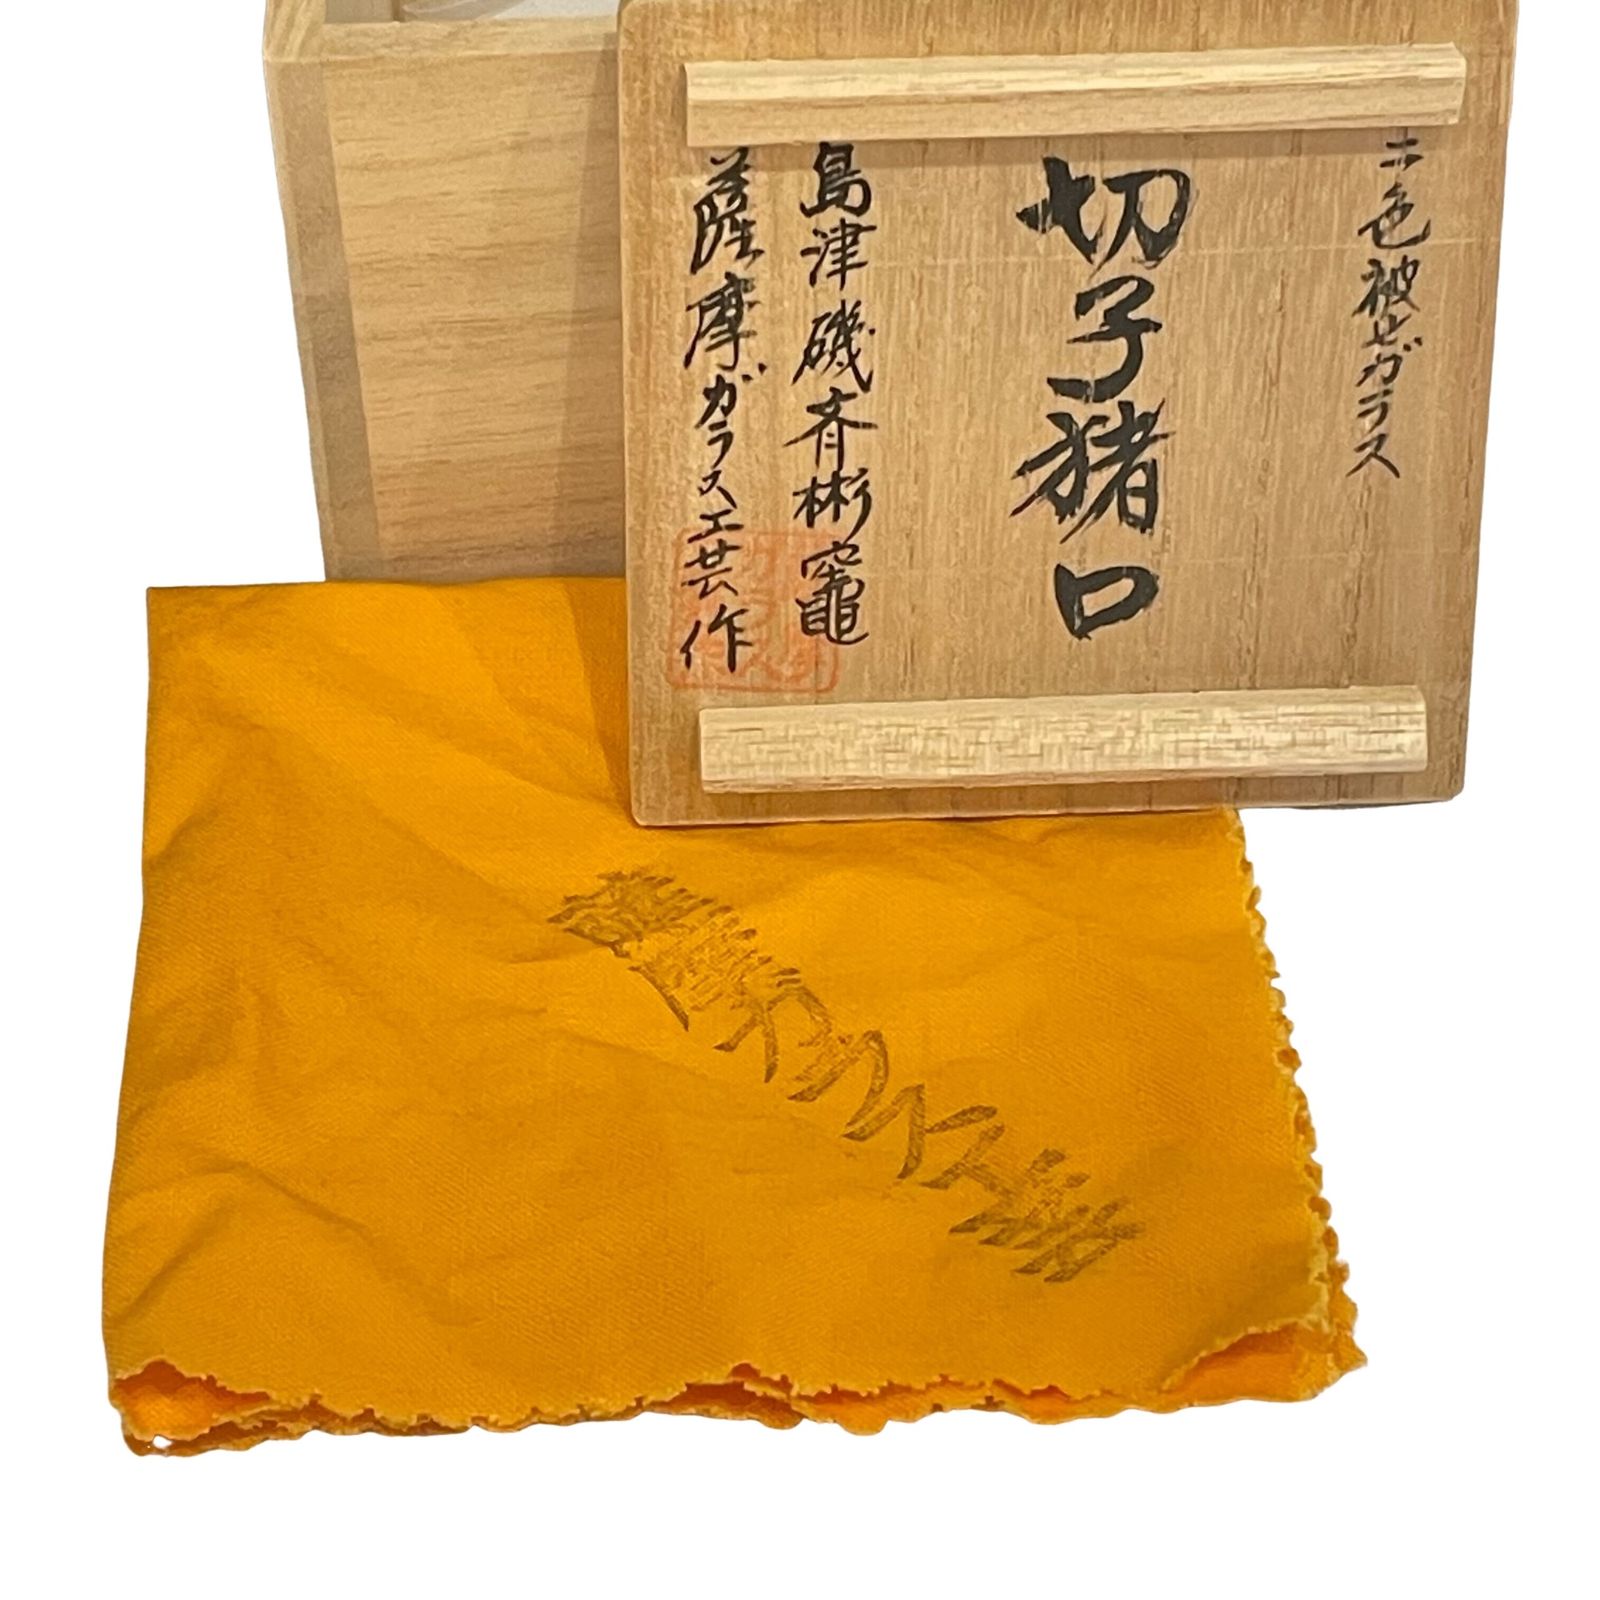 二色被せガラス
切子猪口
島津磯斉彬竈
薩摩ガラス工芸作
薩摩ガラス工芸